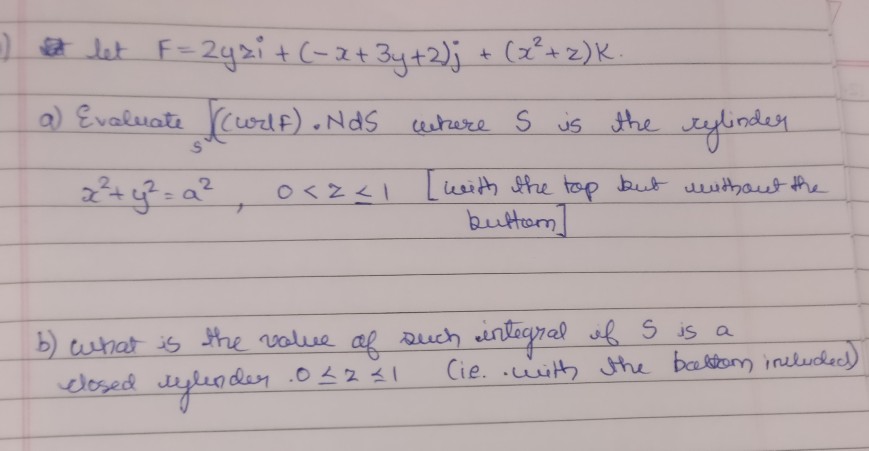 ) let F = 2yzi + (-x + 3y + 2)j + (x² + z)K.
a) Evaluate ∫∫(curl F) . NdS where S is the cylinder
S
x² + y² = a² , 0 < z ≤ 1 [with the top but without the
buttom]
b) what is the value of such integral if S is a
closed cylinder .0 ≤ z ≤ 1 (ie. .with the bottom included)